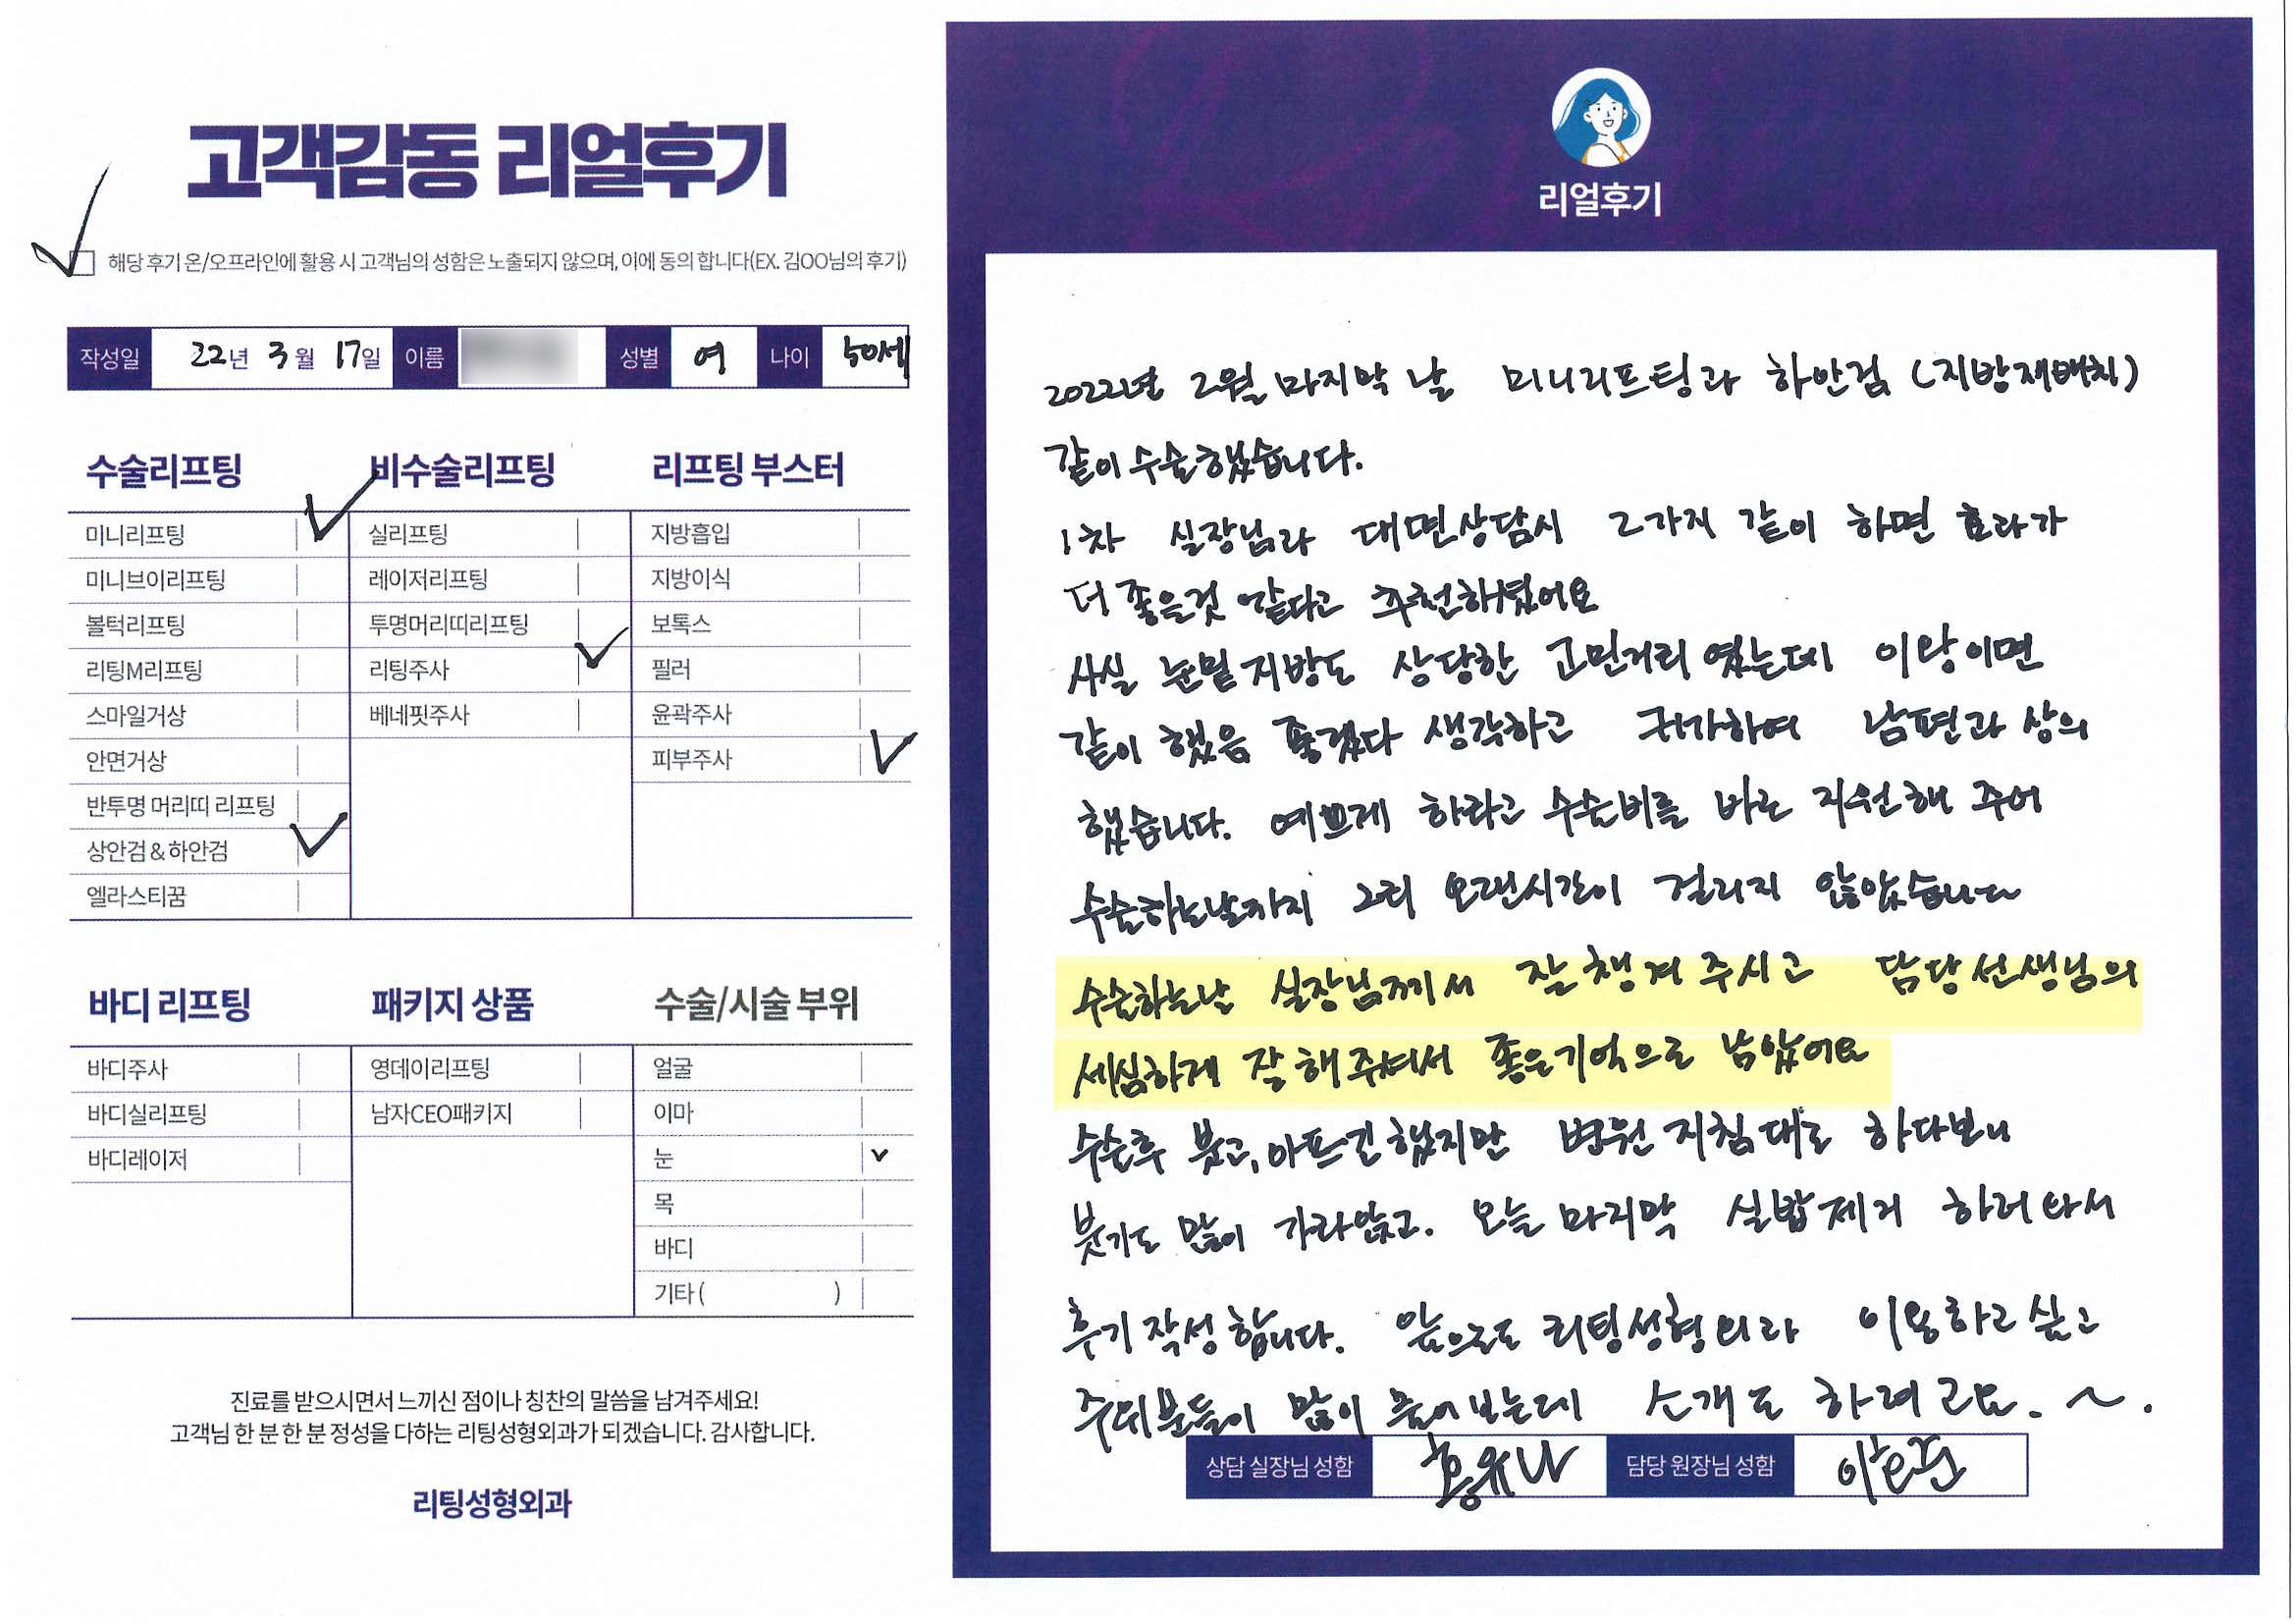 고객감동 리얼후기
해당 후기 온/오프라인에 활용 시 고객님의 성함은 노출되지 않으며, 이에 동의 합니다(EX. 김OO님의 후기)
작성일 22년 3월 17일 이름 성별 여 나이 50세
수술리프팅
미니리프팅
미니브이리프팅
볼턱리프팅
리팅M리프팅
스마일거상
안면거상
반투명 머리띠 리프팅
상안검 & 하안검
엘라스티꿈
비수술리프팅
실리프팅
레이저리프팅
투명머리띠리프팅
리팅주사
베네핏주사
리프팅 부스터
지방흡입
지방이식
보톡스
필러
윤곽주사
피부주사
바디 리프팅
바디주사
바디실리프팅
바디레이저
패키지 상품
영데이리프팅
남자CEO패키지
수술/시술 부위
얼굴
이마
눈
목
바디
기타 ( )
진료를 받으시면서 느끼신 점이나 칭찬의 말씀을 남겨주세요!
고객님 한 분 한 분 정성을 다하는 리팅성형외과가 되겠습니다. 감사합니다.
리팅성형외과
리얼후기
2022년 2월 마지막 날 미니리프팅과 하안검 (지방재배치)
같이 수술했습니다.
1차 실장님과 대면상담시 2가지 같이 하면 효과가
더 좋은것 같다고 추천하셨어요
사실 눈밑 지방도 상당한 고민거리 였는데 이왕이면
같이 했음 좋겠다 생각하고 귀가하여 남편과 상의
했습니다. 예쁘게 하라고 수술비를 바로 지원해 주어
수술하는날까지 그리 오랜시간이 걸리지 않았습니다
수술하는날 실장님께서 잘 챙겨 주시고 담당선생님의
세심하게 잘 해주셔서 좋은기억으로 남았어요
수술후 붓고, 아프긴 했지만 병원 지침대로 하다보니
붓기도 많이 가라앉고. 오늘 마지막 실밥제거 하러 와서
후기 작성합니다. 앞으로도 리팅성형외과 이용하고 싶고
주위분들이 많이 물어보는데 소개도 하려고요. ~.
상담 실장님 성함 홍유나 담당 원장님 성함